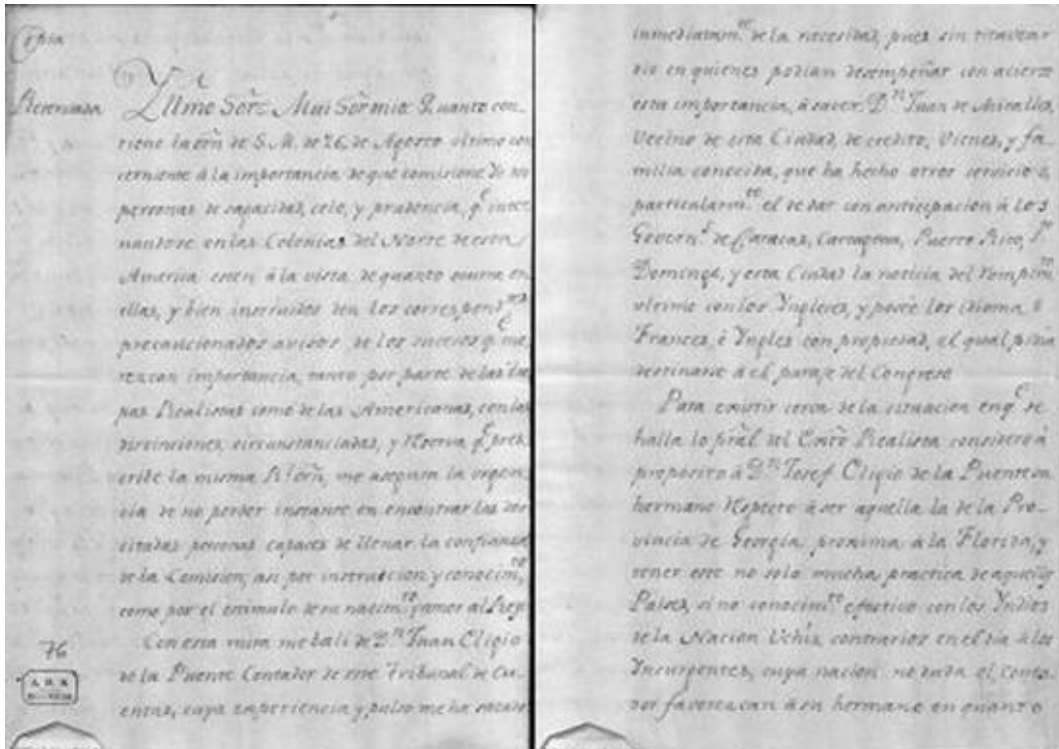 Copia
Reservada
Yllmo Sōr = Mui Sōr mio: Quanto con-
tiene la orn̄ de S. M. de 26 de Agosto ultimo con
cerniente á la importancia de que comisione Yo dos
personas de capacidad, celo, y prudencia, q.e inter
nandose en las Colonias del Norte de esta
America esten á la vista de quanto ocurra en
ellas, y bien instruidos den los correspond.tes
precaucionados avisos de los sucesos q.e me
rezcan importancia, tanto por parte de las tro
pas Realistas como de las Americanas, con las
distinciones, circunstanciadas, y Reserva q.e pres
cribe la misma R.l orn̄, me asegura la urgen
cia de no perder instante en encontrar las dos
citadas personas capaces de llenar la confianza
de la Comision, asi por instruccion y conocim.to
como por el estimulo de su nacim.to y amor al Rey
Con esta mira me bali de D.n Juan Eligio
de la Puente Contador de este Tribunal de Cu-
entas, cuya experiencia y pulso me ha sacado
76
inmediatam.te de la necesidad, pues sin titavear
dio en quienes podian desempeñar con acierto
esta importancia, á saver: D.n Juan de Miralles
Vecino de esta Ciudad, de credito, Vienes, y fa
milia conocida, que ha hecho otros servicios,
particularm.te el de dar con anticipacion á los
Govern.s de Caracas, Cartagena, Puerto Rico, S.to
Domingo, y esta Ciudad la noticia del Rompim.to
ultimo con los Yngleses, y poseé los idiomas
Frances, é Yngles con propiedad, el qual podia
destinarse á el paraje del Congreso
Para existir cerca de la situacion en q.e se
halla lo pral̄ del Cōrto Realista considero á
proposito á D.n Josef Eligio de la Puente su
hermano Respecto á ser aquella la de la Pro-
vincia de Georgia proxima a la Florida, y
tener este no solo mucha practica de aquellos
Paises, si no conocim.to efectivo con los Yndios
de la Nacion Uchis contrarios en el dia á los
Ynsurgentes, cuya nacion no duda el Conta
dor favorezcan á su hermano en quanto